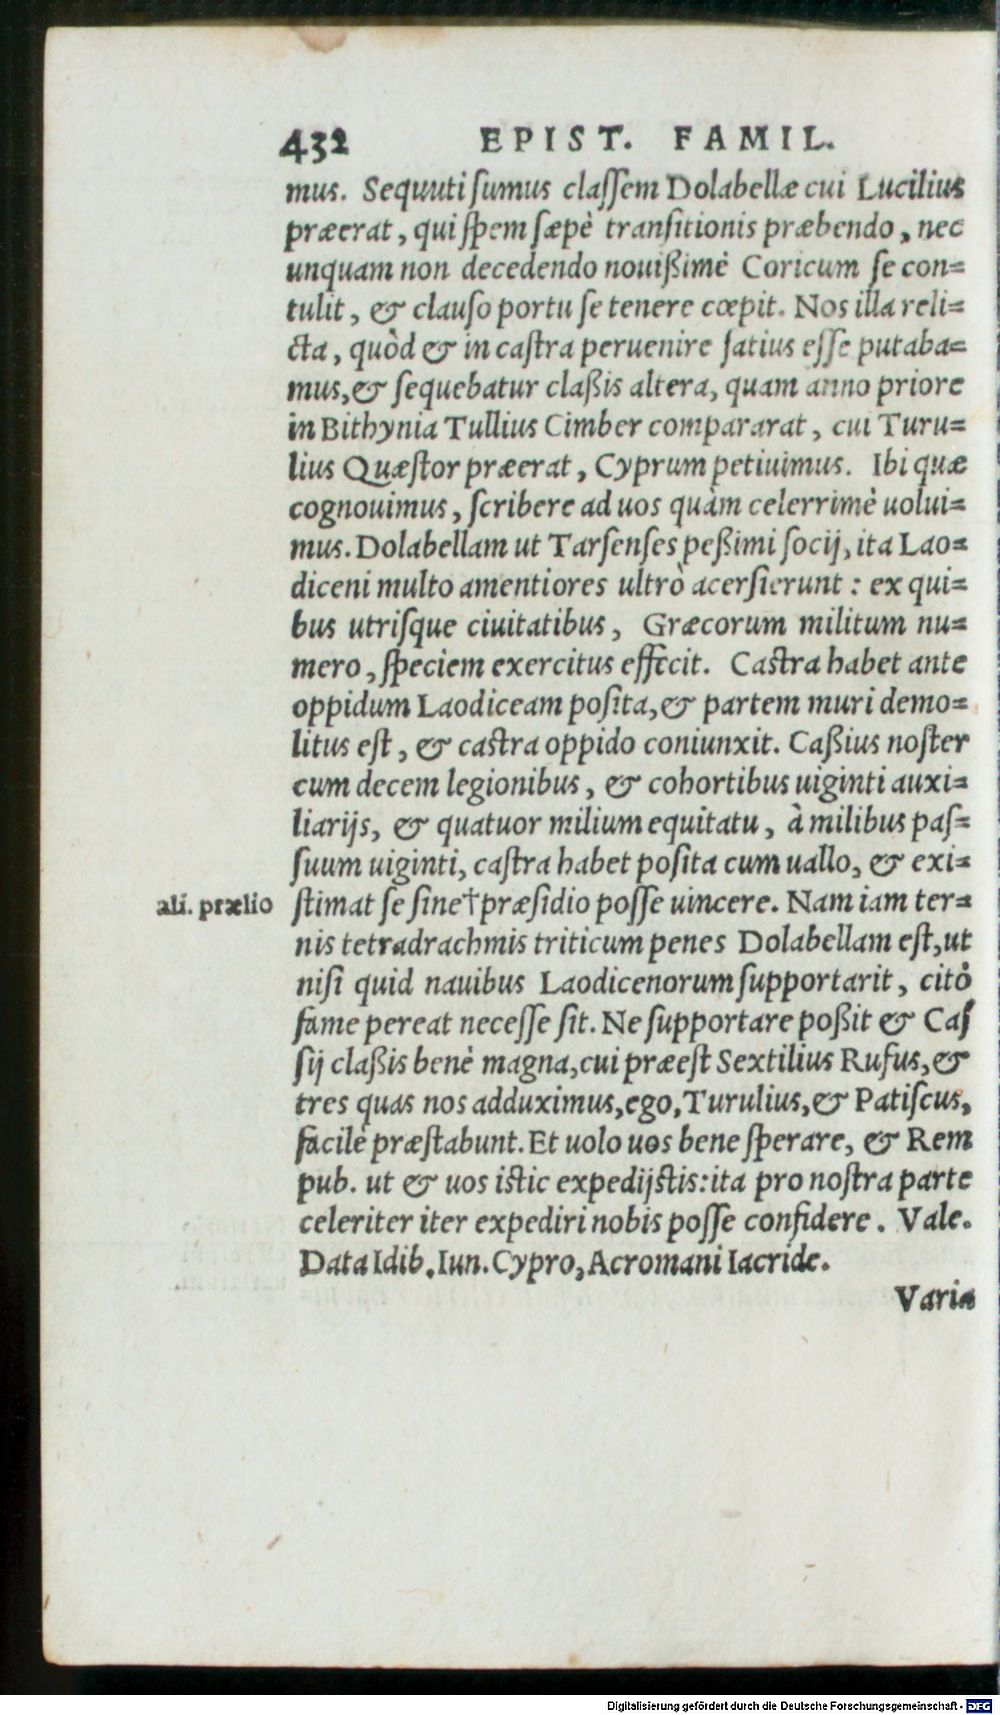 432 EPIST. FAMIL.
mus. Sequuti sumus classem Dolabellæ cui Lucilius
præerat, qui spem sæpè transitionis præbendo, nec
unquam non decedendo nouißimè Coricum se con=
tulit, & clauso portu se tenere cœpit. Nos illa reli=
cta, quòd & in castra peruenire satius esse putaba=
mus, & sequebatur claßis altera, quam anno priore
in Bithynia Tullius Cimber compararat, cui Turu=
lius Quæstor præerat, Cyprum petiuimus. Ibi quæ
cognouimus, scribere ad uos quàm celerrimè uolui=
mus. Dolabellam ut Tarsenses peßimi socij, ita Lao=
diceni multo amentiores ultrò acersierunt: ex qui=
bus utrisque ciuitatibus, Græcorum militum nu=
mero, speciem exercitus effecit. Castra habet ante
oppidum Laodiceam posita, & partem muri demo=
litus est, & castra oppido coniunxit. Caßius noster
cum decem legionibus, & cohortibus uiginti auxi=
liarijs, & quatuor milium equitatu, à milibus pas=
suum uiginti, castra habet posita cum uallo, & exi=
ali. prælio
stimat se sine†præsidio posse uincere. Nam iam ter=
nis tetradrachmis triticum penes Dolabellam est, ut
nisi quid nauibus Laodicenorum supportarit, citò
fame pereat necesse sit. Ne supportare poßit & Cas
sij claßis benè magna, cui præest Sextilius Rufus, &
tres quas nos adduximus, ego, Turulius, & Patiscus,
facilè præstabunt. Et uolo uos bene sperare, & Rem
pub. ut & uos istic expedijstis: ita pro nostra parte
celeriter iter expediri nobis posse confidere. Vale.
Data Idib. Iun. Cypro, Acromani Iacride.
Varia
Digitalisierung gefördert durch die Deutsche Forschungsgemeinschaft - DFG